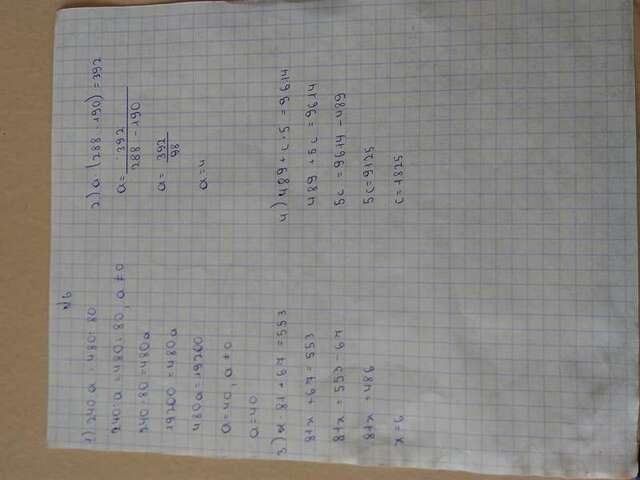 N6
1) 240:a = 480:80
240:a = 480:80, a ≠ 0
240·80 = 480a
19200 = 480a
480a = 19200
a = 40, a ≠ 0
a = 40
2) a·(288-190) = 392
a = 392/(288-190)
a = 392/98
a = 4
3) x·81+67 = 553
81x+67 = 553
81x = 553-67
81x = 486
x = 6
4) 489+c·5 = 9614
489+5c = 9614
5c = 9614-489
5c = 9125
c = 1825